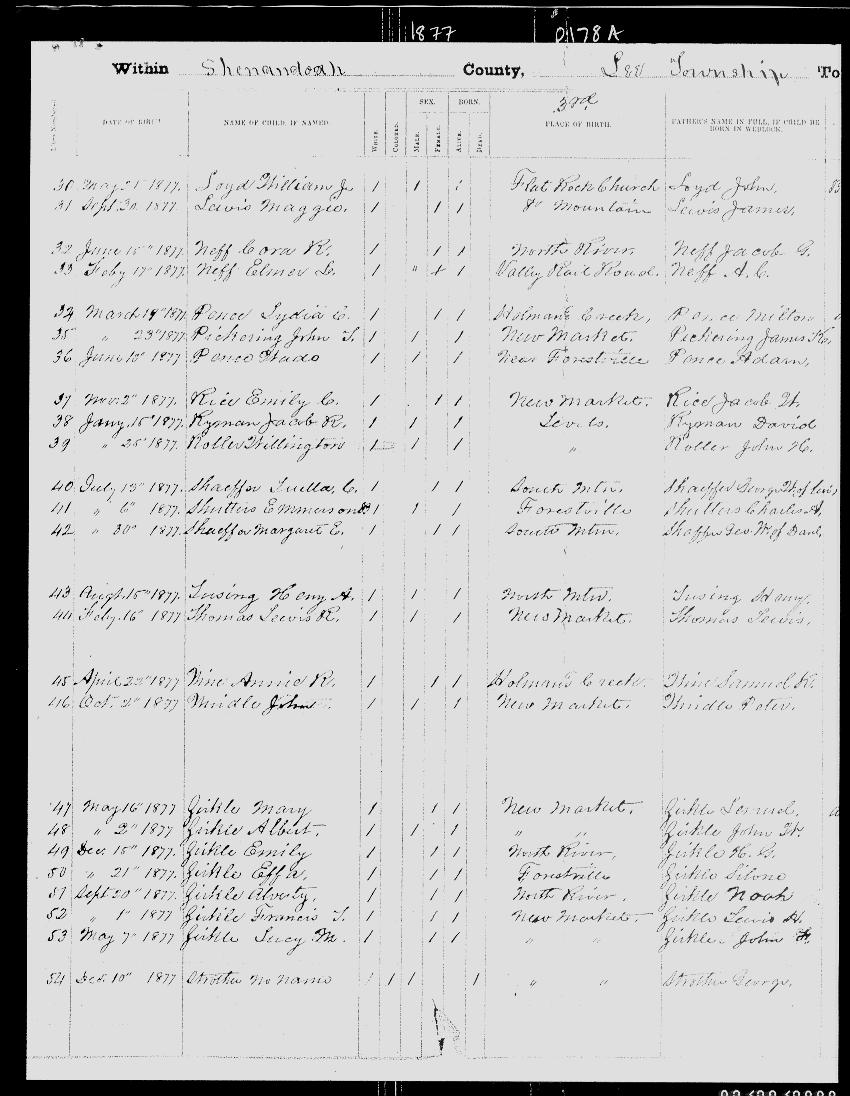 1877
0178A
Within Shenandoah County, Lee Township To
3rd
SEX. BORN.
Line Number. DATE OF BIRTH. NAME OF CHILD, IF NAMED. WHITE. COLORED. MALE. FEMALE. ALIVE. DEAD. PLACE OF BIRTH. FATHER'S NAME IN FULL, IF CHILD BE BORN IN WEDLOCK.
30 May 21" 1877. Loyd William J. 1 1 1 Flat Rock Church Loyd John,
31 Sept. 30 1877. Lewis Maggie. 1 1 1 Mountain Lewis James,
32 June 15" 1877. Neff Cora R. 1 1 1 North River. Neff Jacob G.
33 Feby 17" 1877. Neff Elmer D. 1 " + 1 Valley Rail Road. Neff A. C.
34 March 19" 1877. Pence Lydia C. 1 1 1 Holman's Creek, Pence Milton
35 " 23" 1877. Pickering John T. 1 1 1 New Market. Pickering James K.
36 June 10" 1877 Pence Wade 1 1 1 Near Forestville Pence Adam,
37 Nov. 2" 1877. Rice Emily C. 1 1 1 New Market. Rice Jacob W.
38 Jany. 15" 1877. Ryman Jacob R. 1 1 1 Levels. Ryman David
39 " 25" 1877. Roller Willington 1 1 1 " Roller John H.
40 July 13" 1877. Shaeffer Luella, C. 1 1 1 South Mtn. Shaeffer George W. of Levi,
41 " 6" 1877. Shutters Emmerson 1 1 1 Forestville Shutters Charles A,
42 " 30" 1877. Shaeffer Margaret E. 1 1 1 South Mtn. Shaffer Geo. W. of Danl,
43 Augt. 15" 1877. Tusing Heny A. 1 1 1 North Mtn. Tusing Heny.
44 Feby. 16" 1877 Thomas Lewis R. 1 1 1 New Market. Thomas Lewis,
45 April 22" 1877 Wine Annie R. 1 1 1 Holman's Creek. Wine Samuel K.
46 Oct. 2" 1877 Windle John 1 1 1 New Market. Windle Peter.
47 May 16" 1877 Zirkle Mary 1 1 1 New Market. Zirkle Lemuel,
48 " 2" 1877 Zirkle Albert. 1 1 1 " " Zirkle John W.
49 Dec. 15" 1877. Zirkle Emily 1 1 1 North River, Zirkle H. G.
50 " 21" 1877 Zirkle Effie, 1 1 1 Forestville Zirkle Silone
51 Sept 20" 1877. Zirkle Alverty. 1 1 1 North River. Zirkle Noah
52 " 1" 1877 Zirkle Francis T. 1 1 1 New Market. Zirkle Lewis H.
53 May 7" 1877 Zirkle Lucy M. 1 1 1 " " Zirkle John F.
54 Dec. 10" 1877 Strother no name 1 1 1 1 " " Strother George.